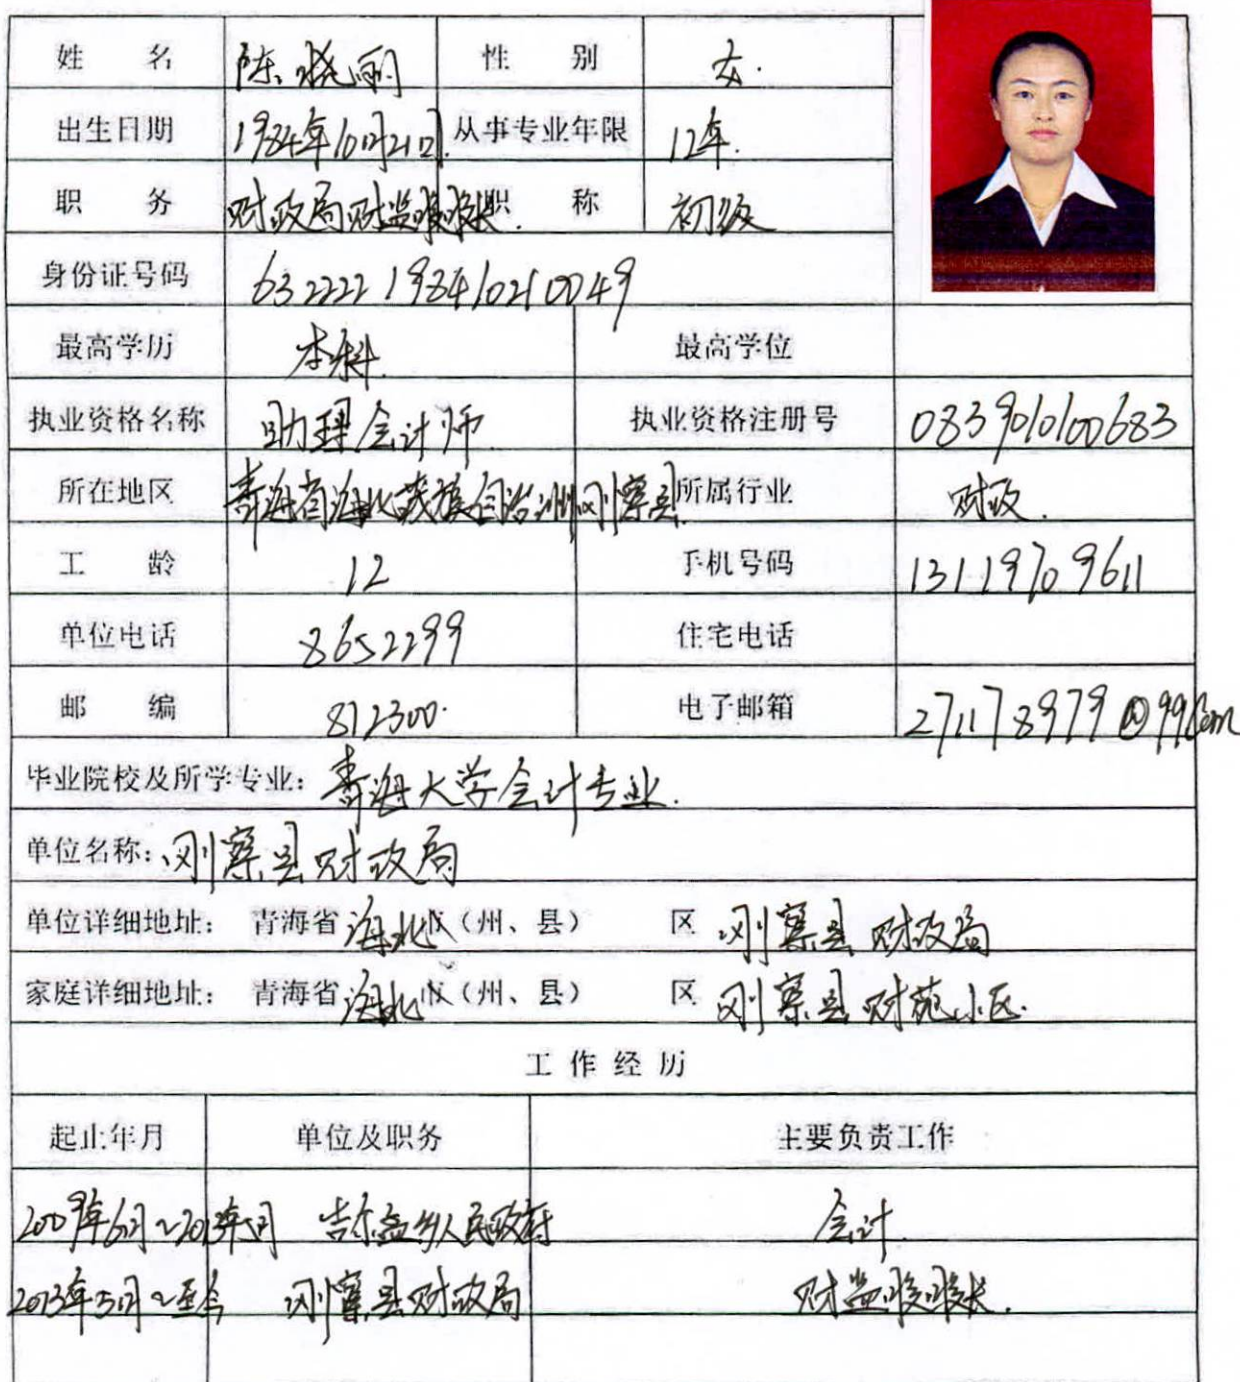 姓 名 陈晓丽 性 别 女.
出生日期 1984年10月21日. 从事专业年限 12年.
职 务 财政局财监股股长. 职 称 初级
身份证号码 632222198410210049
最高学历 本科. 最高学位
执业资格名称 助理会计师 执业资格注册号 0839010100683
所在地区 青海省海北藏族自治州刚察县. 所属行业 财政.
工 龄 12 手机号码 13119709611
单位电话 8652299 住宅电话
邮 编 812300. 电子邮箱 271178979@99.com
毕业院校及所学专业: 青海大学会计专业.
单位名称: 刚察县财政局
单位详细地址: 青海省海北（州、县） 区 刚察县财政局
家庭详细地址: 青海省海北（州、县） 区 刚察县财苑小区.
工作经历
起止年月 单位及职务 主要负责工作
2009年6月~2013年5月 吉尔孟乡人民政府 会计.
2013年5月~至今 刚察县财政局 财监股股长.